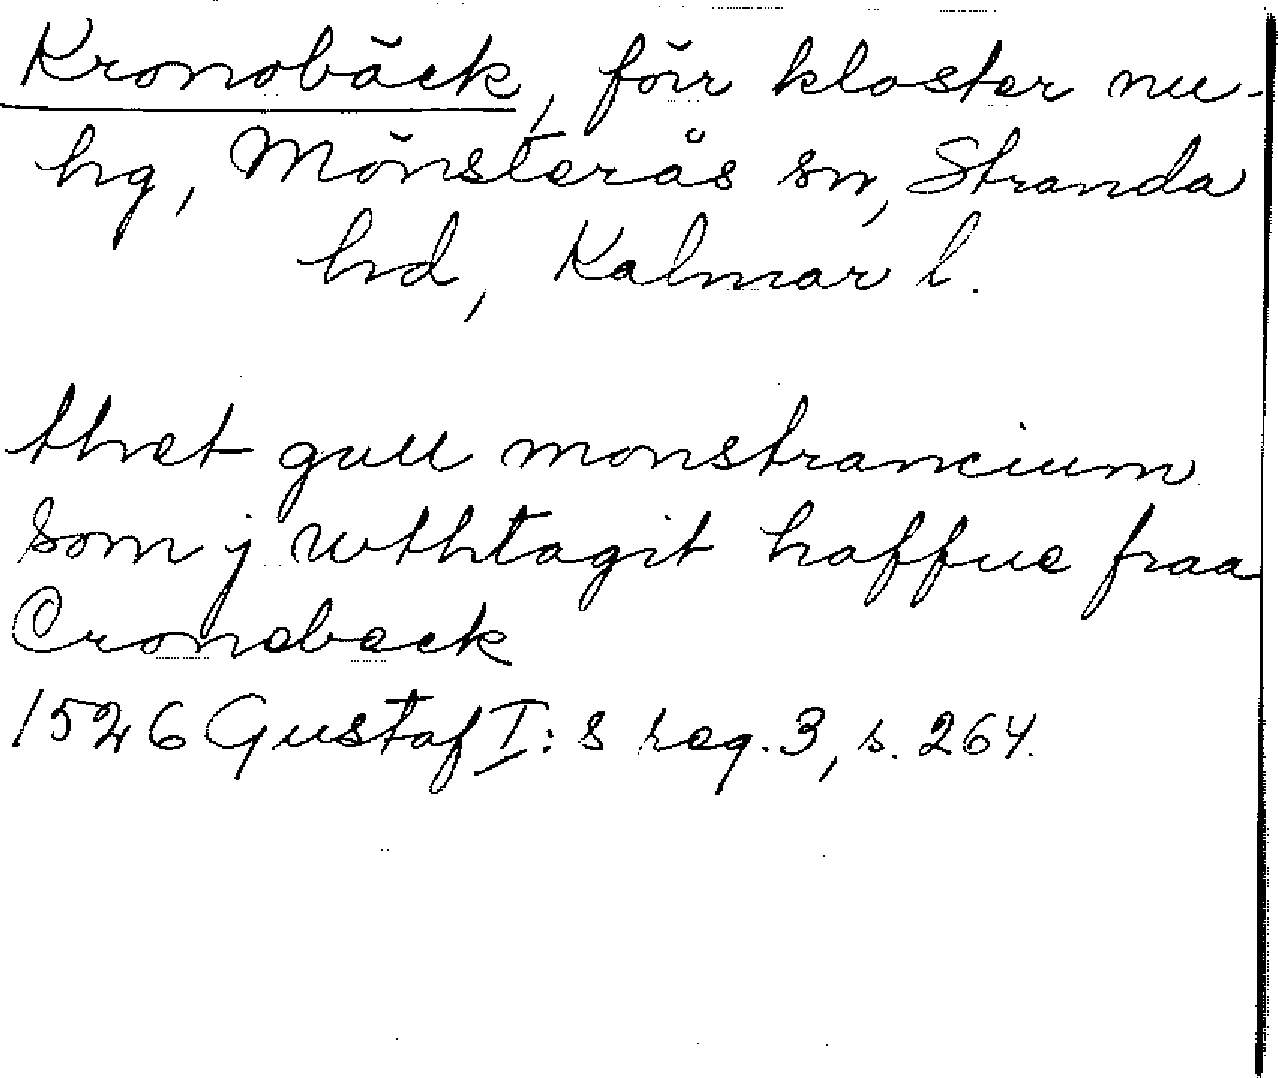 Kronobäck, förr kloster nu-
hg, Mönsterås sn, Stranda
hd, Kalmar l.
thet gull monstrancium
som j wthtagit haffue fraa
Cronebeck
1526 Gustaf I:s reg. 3, s. 264.